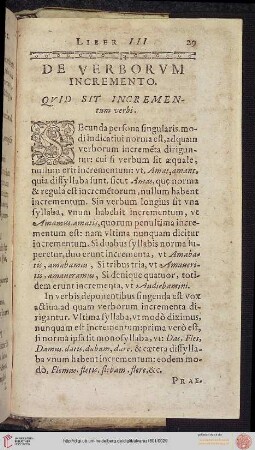 LIBER III 29
DE VERBORVM
INCREMENTO.
QVID SIT INCREMEN-
tum verbi.
SEcunda persona singularis mo-
di indicatiui norma est, ad quam
verborum increméta dirigun-
tur: cui si verbum sit æquale,
nullum erit incrementum: vt Amas, amant,
quia dissyllaba sunt, sicut Amas, quæ norma
& regula est incrementorum, nullum habent
incrementum. Sin verbum longius sit vna
syllaba, vnum habebit incrementum, vt
Amamus, amatis, quorum penultima incre-
mentum est: nam vltima nunquam dicitur
incrementum. Si duabus syllabis norma su-
peretur, duo erunt incrementa, vt Amaba
tis, amabamus, Si tribus tria, vt Amaueri-
tis, amaueramus, Si denique quatuor, totidem
erunt incrementa, vt Audiebamini.
In verbis deponentibus fingenda est vox
actiua, ad quam verborum incrementa di-
rigantur. Vltima syllaba, vt modò diximus,
nunquam est incrementum: prima verò est,
si norma ipsa sit monosyllaba, vt: Das, Fles,
Damus, datis, dabam, dare, & cætera dissylla-
ba vnum habent incrementum: eodem mo-
dò, Flemus, fletis, flebam, flere, &c.
PRAE-